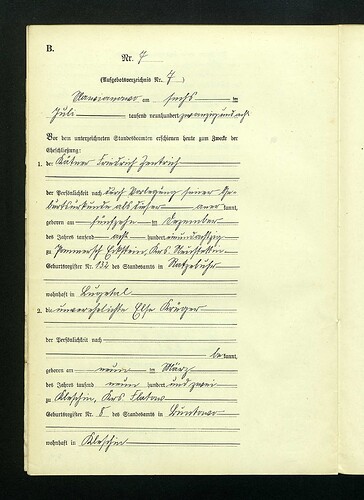 B.
Nr. 7
(Aufgebotsverzeichnis Nr. 7)
am sechs ten
Juli tausend neunhundert zwanzig und acht
Vor dem unterzeichneten Standesbeamten erschienen heute zum Zwecke der
Eheschließung:
1. der Kätner Friedrich
der Persönlichkeit nach durch Vorlegung seiner Ge-
burtsurkunde als dieser aner kannt,
geboren am fünfzehn ten Dezember
des Jahres tausend acht hundert
zu Eckstein, Krs. Neustettin
Geburtsregister Nr. 132 des Standesamts in Ratzebuhr
wohnhaft in Lugetal
2. die unverehelichte Else Krüger
der Persönlichkeit nach
be kannt,
geboren am neun ten März
des Jahres tausend neun hundert und zwei
zu Kleschin, Krs. Flatow
Geburtsregister Nr. 8 des Standesamts in
wohnhaft in Kleschin